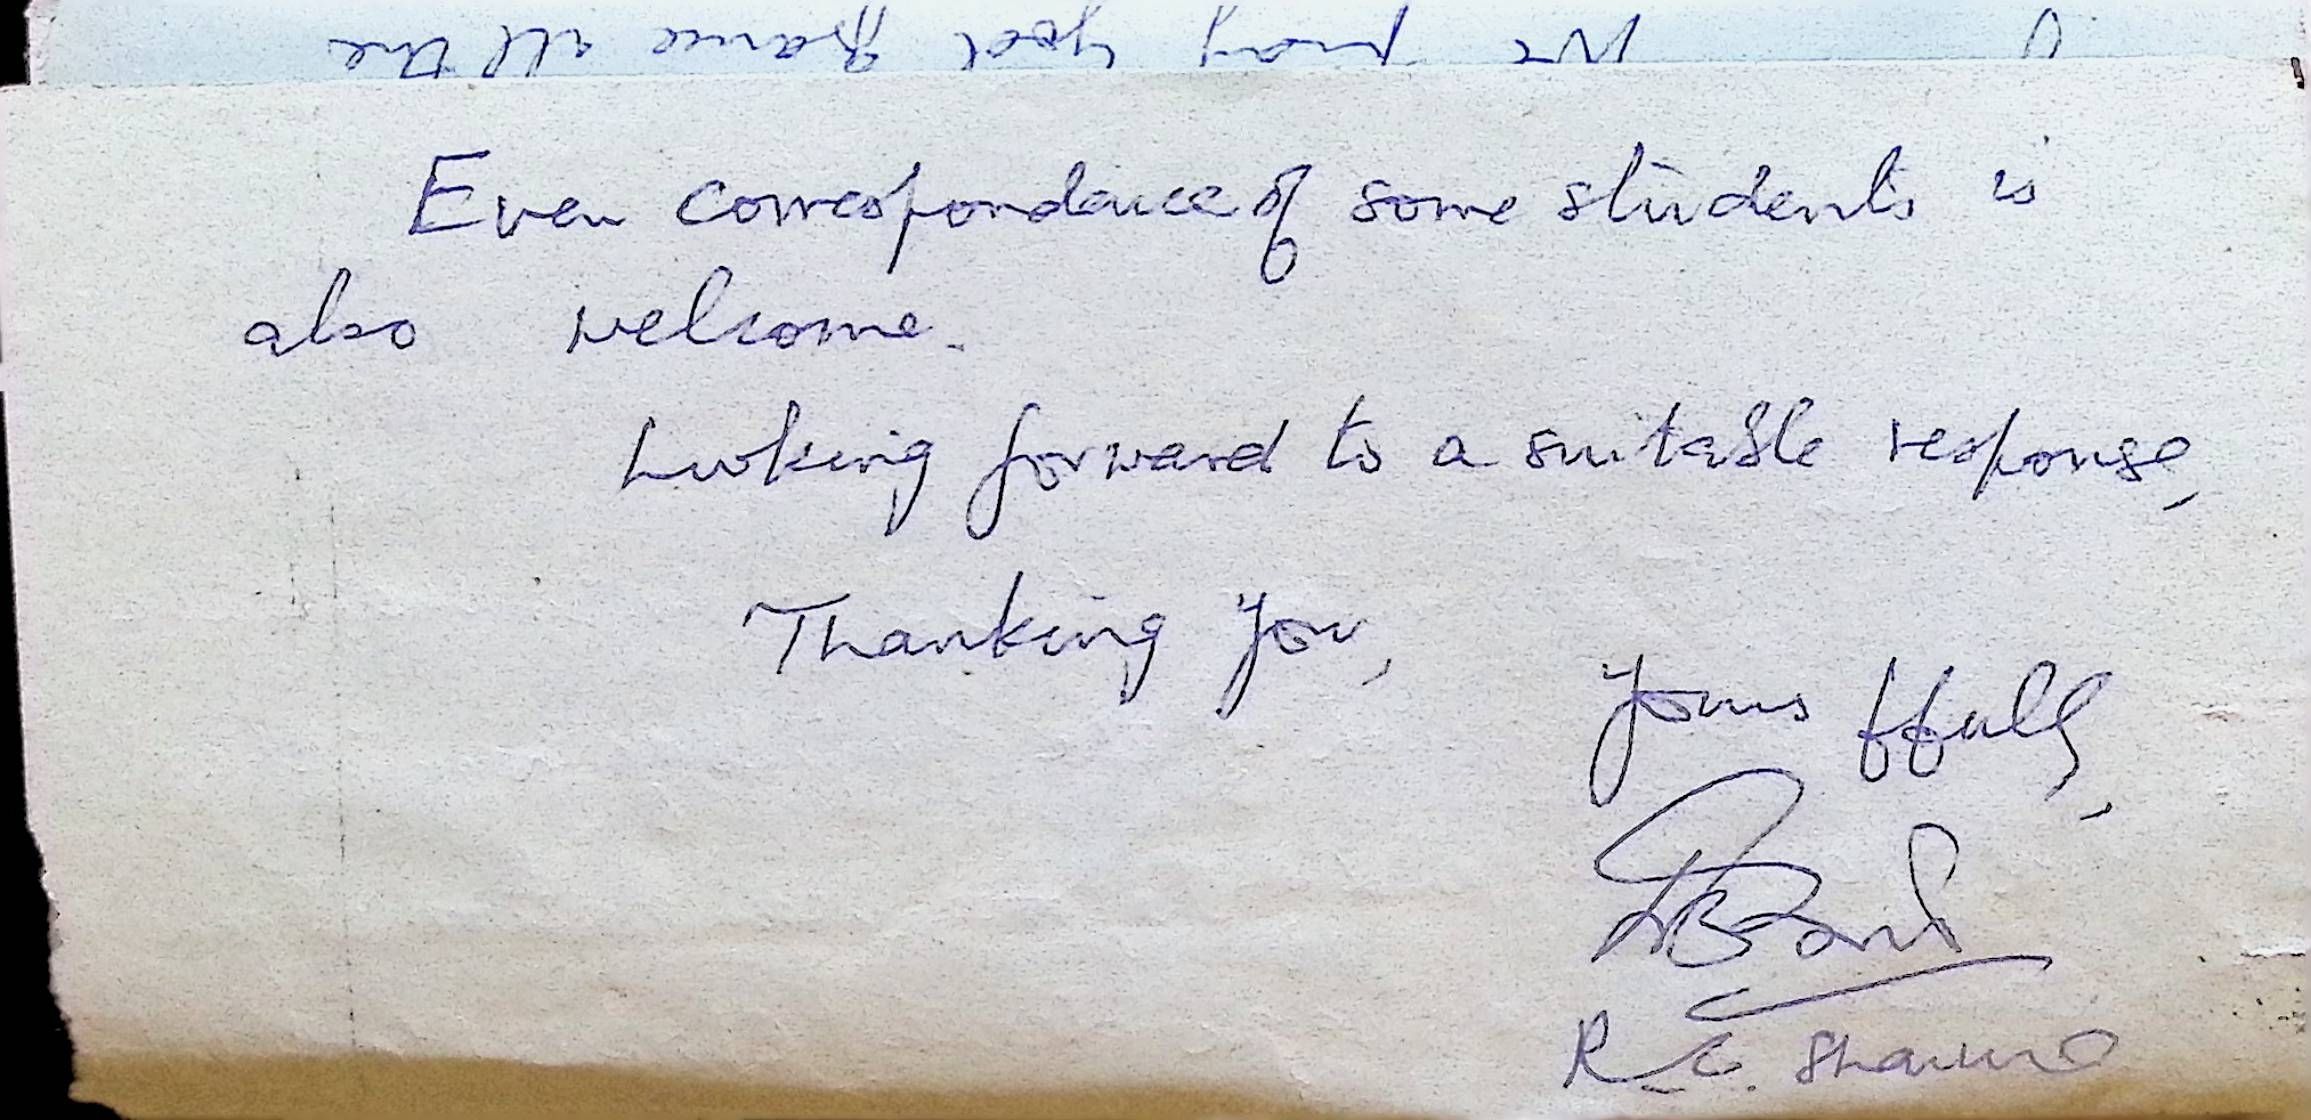 We pray God bame all the
Even correspondence of some students is
also welcome.
Looking forward to a suitable response,
Thanking you,
Yours ffully,
R.C. Sharma